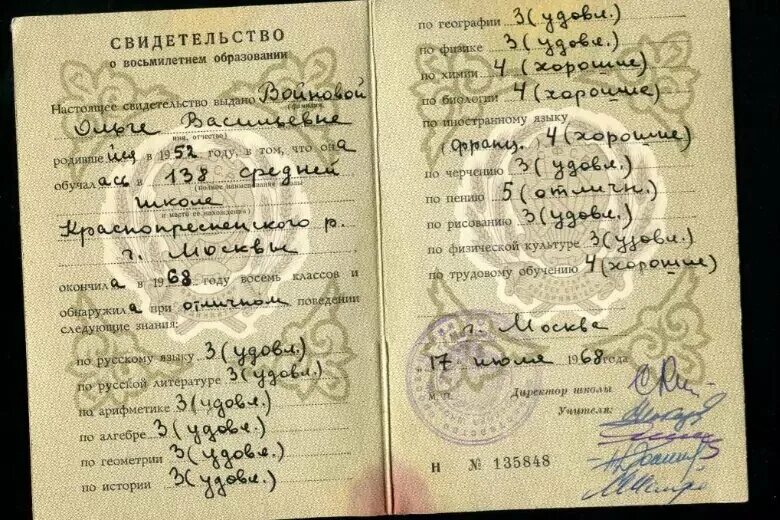 СВИДЕТЕЛЬСТВО
о восьмилетнем образовании
Настоящее свидетельство выдано Войновой
(фамилия,
Ольге Васильевне
имя, отчество)
родившейся в 1952 году, в том, что она
обучалась в 138 средней
(полное наименование школы
школе
и место ее нахождения)
Краснопресненского р.
г. Москвы
окончила в 1968 году восемь классов и
обнаружила при отличном поведении
следующие знания:
по русскому языку 3 (удовл.)
по русской литературе 3 (удовл.)
по арифметике 3 (удовл.)
по алгебре 3 (удовл.)
по геометрии 3 (удовл.)
по истории 3 (удовл.)
по географии 3 (удовл.)
по физике 3 (удовл.)
по химии 4 (хорошие)
по биологии 4 (хорошие)
по иностранному языку
(франц.) 4 (хорошие)
по черчению 3 (удовл.)
по пению 5 (отличн.)
по рисованию 3 (удовл.)
по физической культуре 3 (удовл.)
по трудовому обучению 4 (хорошие)
г. Москва
17 июля 1968 года
м.п. Директор школы
Учителя:
Н № 135848